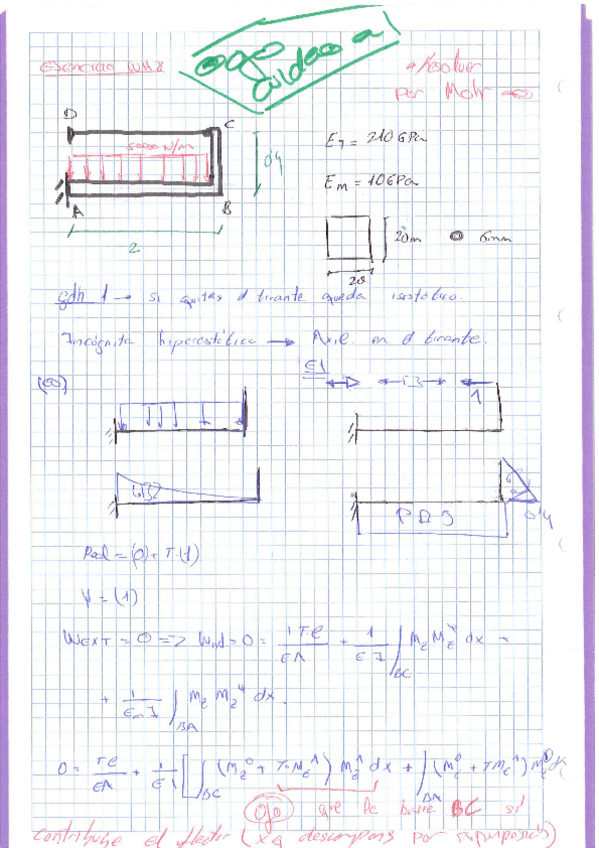 ojo cuidado a!
a resolver
por Mohr
D
C
5000 N/m
0'4
A
B
2
E_T = 210 GPa
E_m = 10 GPa
20m
6mm
20
gdh 1 → si quitas el tirante queda isostático.
Incógnita hiperestática → Axil en el tirante.
(0)
1
0'4
Real = (0) + T·(1)
ψ = (1)
W_EXT = 0 => W_ind = 0 = 1·T·l / EA + 1 / EI ∫_BC M_z M_z^ψ dx +
+ 1 / E_m I ∫_BA M_z M_z^ψ dx.
0 = Tl / EA + 1 / EI [ ∫_BC (M_z^0 + T·M_z^1) M_z^1 dx + ∫_BA (M_z^0 + T M_z^1) M_z^1 dx
Ojo que la barra BC sí
contribuye el flector (xq descompones por superposición)